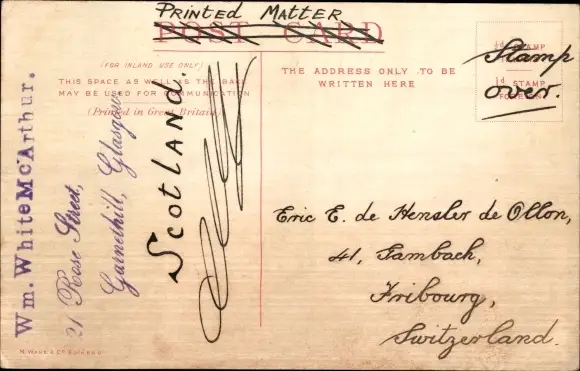 Printed Matter
POST CARD
(FOR INLAND USE ONLY)
THIS SPACE AS WELL AS THE BACK
MAY BE USED FOR COMMUNICATION
(Printed in Great Britain)
THE ADDRESS ONLY TO BE
WRITTEN HERE
½d STAMP
1d STAMP
Stamp
over.
Wm. White McArthur.
21 Rose Street,
Garnethill, Glasgow
Scotland.
Eric E. de Hensler de Ollon,
41, Gambach,
Fribourg,
Switzerland.